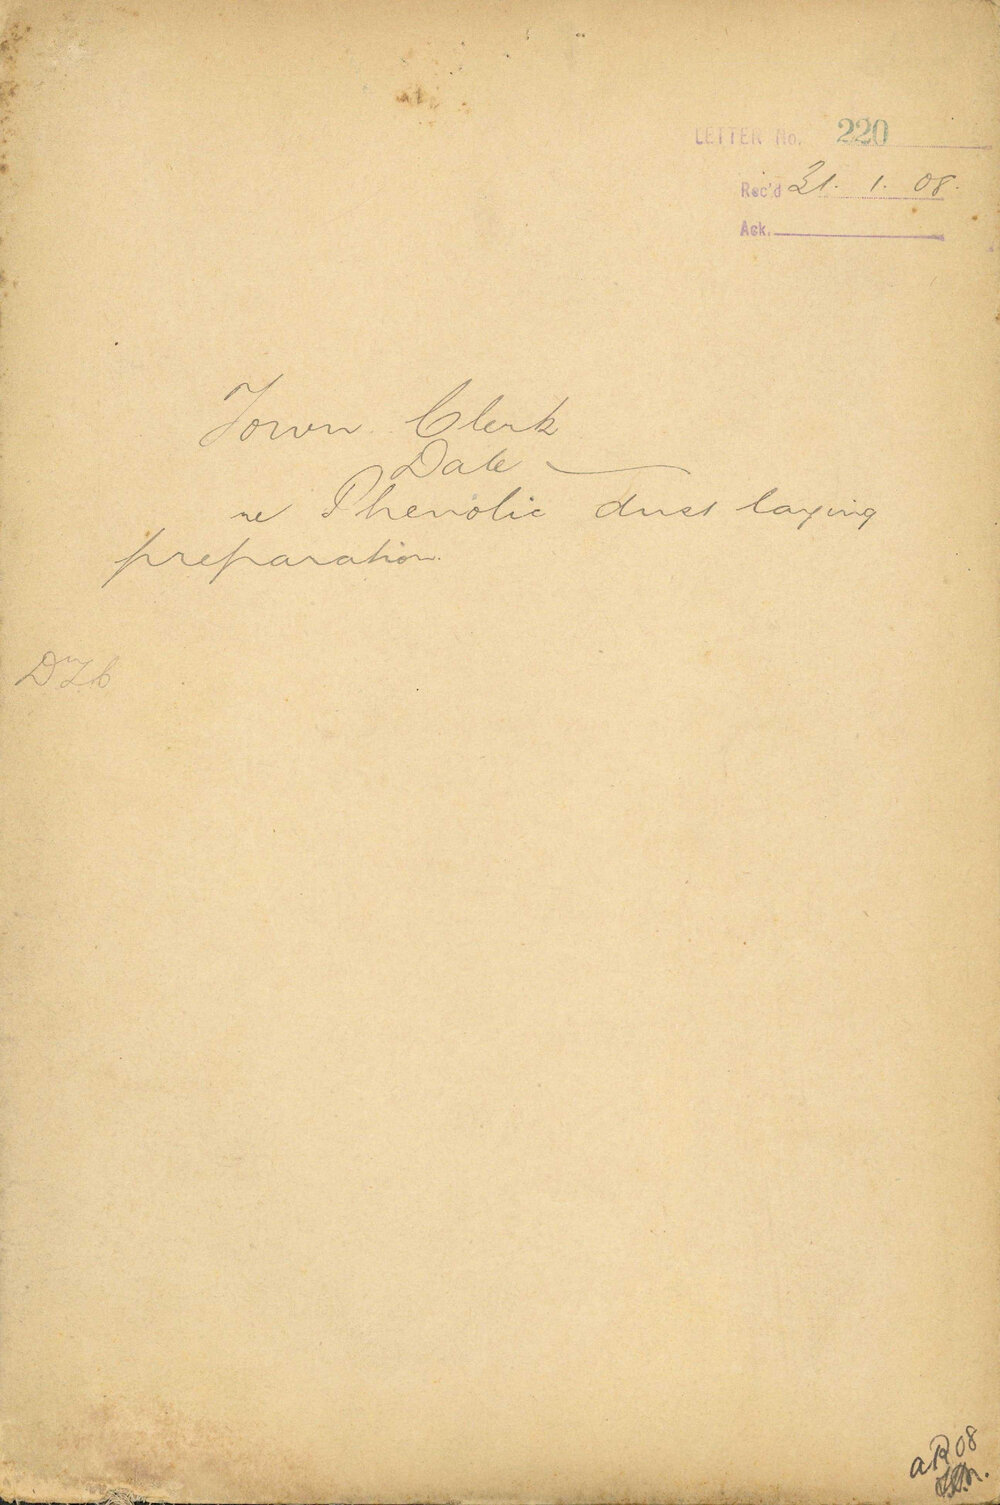 LETTER No. 220
Rec'd 31. 1. 08.
Ack.
Town Clerk
Date
re Phenolic dust laying
preparation.
aR 08